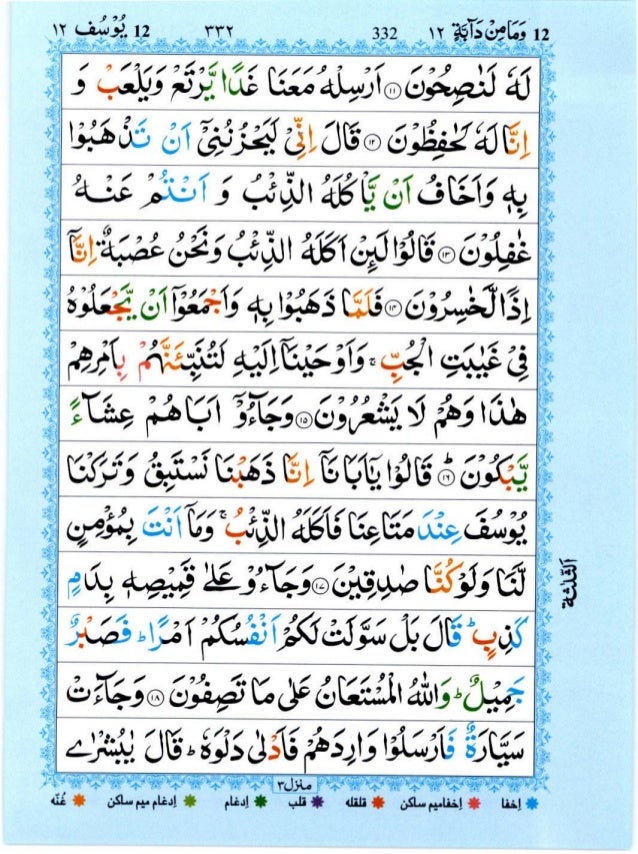 12 وَمَا مِنْ دَآبَّةٍ ١٢
332
٣٣٢
12 يُوْسُف ١٢
لَهٗ لَنٰصِحُوْنَ ﴿۱۱﴾ اَرْسِلْهُ مَعَنَا غَدًا يَّرْتَعْ وَيَلْعَبْ وَ
اِنَّا لَهٗ لَحٰفِظُوْنَ ﴿۱۲﴾ قَالَ اِنِّىْ لَيَحْزُنُنِىْۤ اَنْ تَذْهَبُوْا
بِهٖ وَاَخَافُ اَنْ يَّاْكُلَهُ الذِّئْبُ وَ اَنْتُمْ عَنْهُ
غٰفِلُوْنَ ﴿۱۳﴾ قَالُوْا لَىِٕنْ اَكَلَهُ الذِّئْبُ وَنَحْنُ عُصْبَةٌ اِنَّاۤ
اِذًا لَّخٰسِرُوْنَ ﴿۱۴﴾ فَلَمَّا ذَهَبُوْا بِهٖ وَاَجْمَعُوْۤا اَنْ يَّجْعَلُوْهُ
فِىْ غَيٰبَتِ الْجُبِّ ۚ وَاَوْحَيْنَاۤ اِلَيْهِ لَتُنَبِّئَنَّهُمْ بِاَمْرِهِمْ
هٰذَا وَهُمْ لَا يَشْعُرُوْنَ ﴿۱۵﴾ وَجَآءُوْۤ اَبَاهُمْ عِشَآءً
يَّبْكُوْنَ ؕ﴿۱۶﴾ قَالُوْا يٰۤاَبَانَاۤ اِنَّا ذَهَبْنَا نَسْتَبِقُ وَتَرَكْنَا
يُوْسُفَ عِنْدَ مَتَاعِنَا فَاَكَلَهُ الذِّئْبُ ۚ وَمَاۤ اَنْتَ بِمُؤْمِنٍ
لَّنَا وَلَوْ كُنَّا صٰدِقِيْنَ ﴿۱۷﴾ وَجَآءُوْ عَلٰى قَمِيْصِهٖ بِدَمٍ
كَذِبٍ ؕ قَالَ بَلْ سَوَّلَتْ لَكُمْ اَنْفُسُكُمْ اَمْرًا ؕ فَصَبْرٌ
جَمِيْلٌ ؕ وَاللّٰهُ الْمُسْتَعَانُ عَلٰى مَا تَصِفُوْنَ ﴿۱۸﴾ وَجَآءَتْ
سَيَّارَةٌ فَاَرْسَلُوْا وَارِدَهُمْ فَاَدْلٰى دَلْوَهٗ ؕ قَالَ يٰبُشْرٰى
الثلثة
منزل ٣
اِخفا
اِخفامیم ساکن
قلقله
قلب
اِدغام
اِدغام میم ساکن
غُنّه